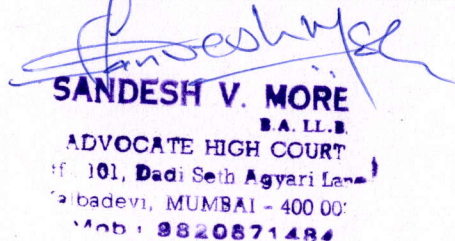 SANDESH V. MORE
B.A. LL.B.
ADVOCATE HIGH COURT
101, Dadi Seth Agyari Lane
albadevi, MUMBAI - 400 00
Mob : 9820871484